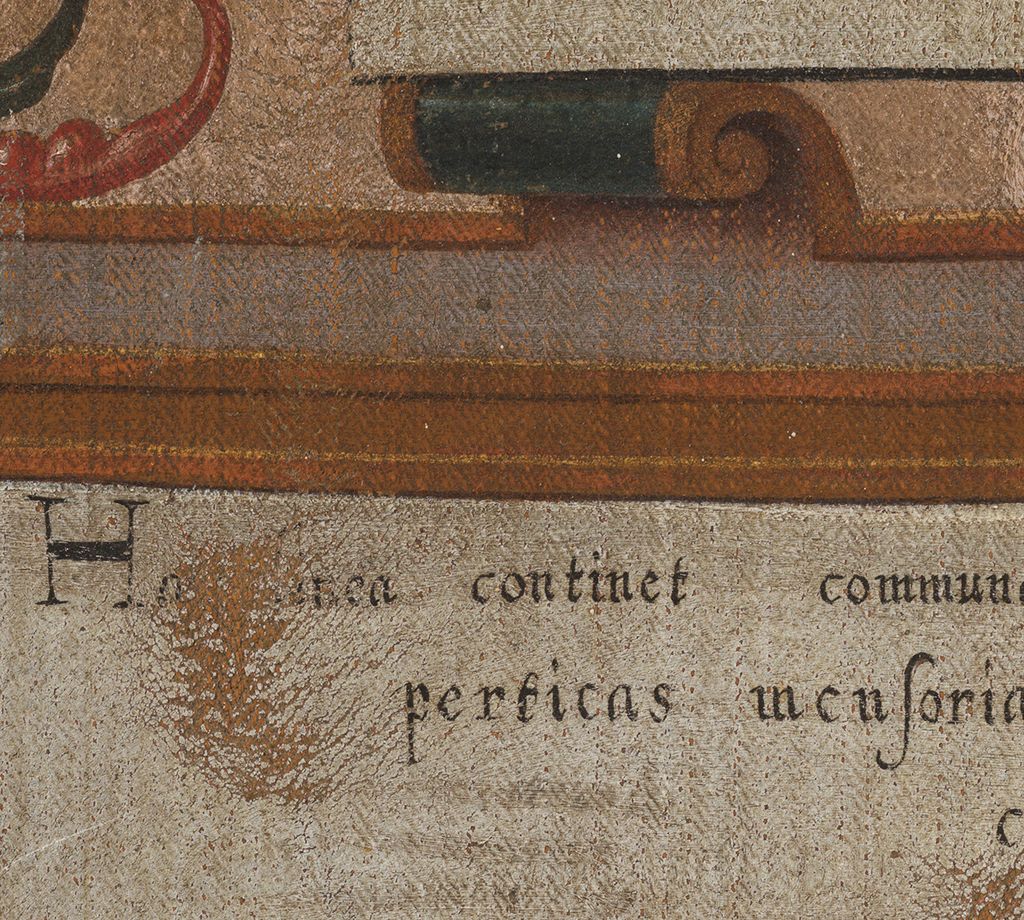 continet commun
perticas menſoria
c